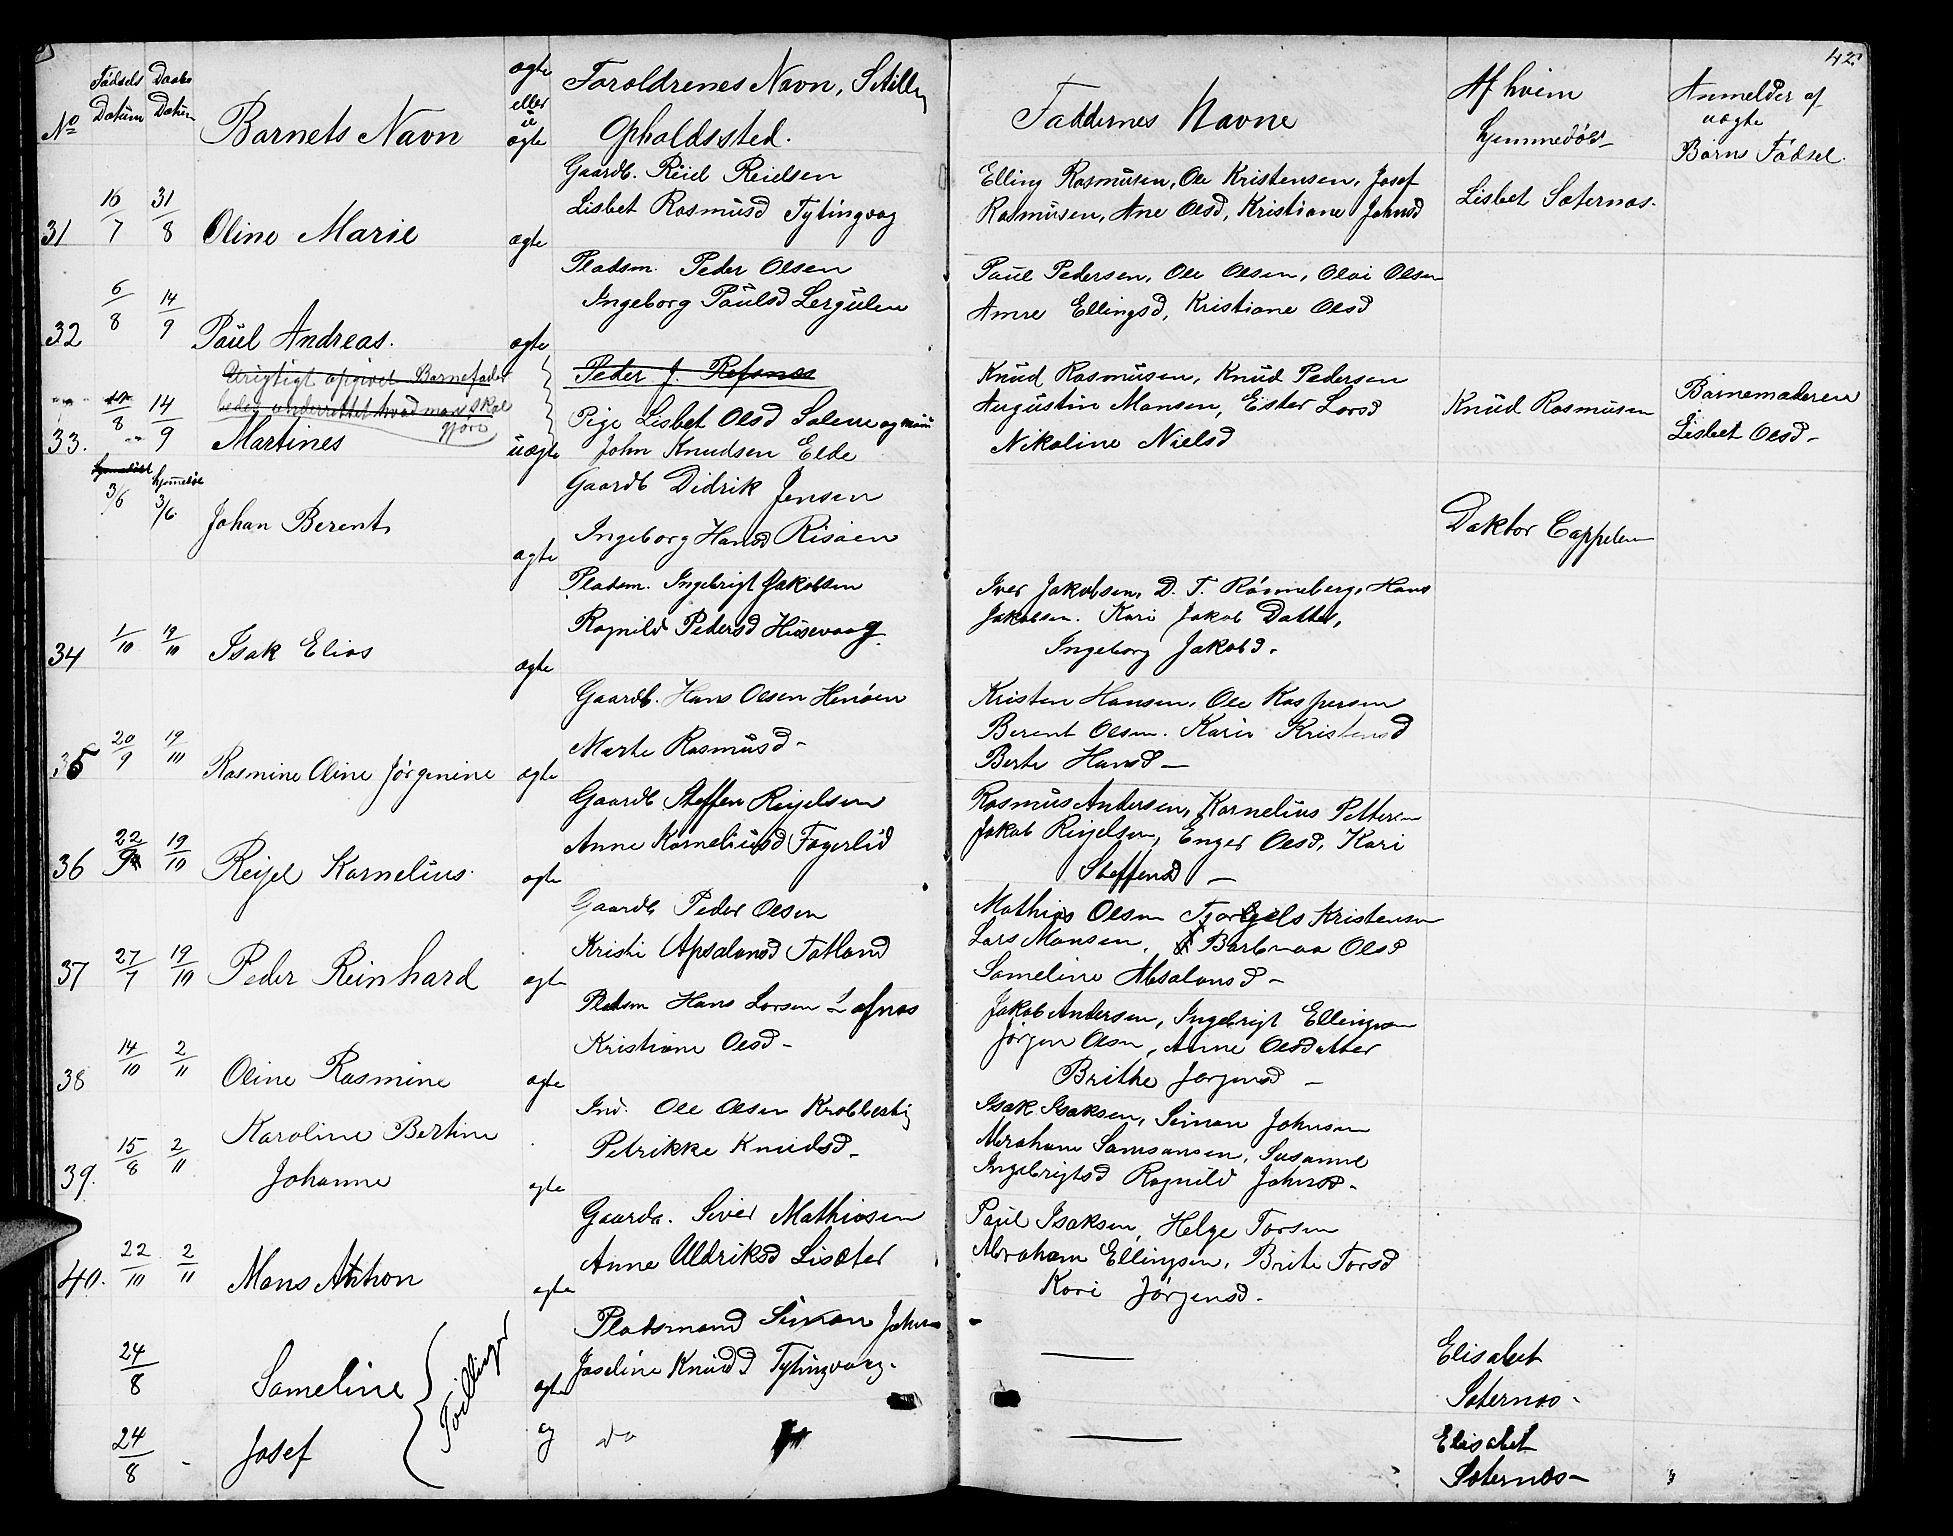 42.
No
Födsels Datum
Daabs Datum
Barnets Navn
ægte eller uægte
Foroldrenes Navn, Stilly
Opholdssted.
Faddernes Navne
Af hvem
hjemmedöbt
Anmelder af
uægte
Börns Födsel.
31 16/7 31/8 Oline Marie ægte
Gaardb. Reiel Reielsen
Lisbet Rasmusd Tytingvag
Elling Rasmusen, Ole Kristensen, Josef
Rasmusen, Ane Olsd, Kristiane Johnsd
Lisbet Sæternæs.
32 6/8 14/9 Paul Andreas. ægte
Pladsm. Peder Olsen
Ingeborg Paulsd Lergulen
Paul Pedersen, Ole Olsen, Olai Olsen
Anne Ellingsd, Kristiane Olsd
Urigtigt opgivet Barnefader
beder underrettet hvad man skal
gjøre
33. 8 14/9 Martines uægte
Peder J. Refsnæs
Pige Lisbet Olsd Salem
John Knudsen Elde
Knud Rasmusen, Knud Pedersen
Augustin Mansen, Ester Larsd
Nikoline Nielsd
Knud Rasmusen
Barnemoderen
Lisbet Olsd-
hjemdöbt 3/6 hjemdöbt 3/6 Johan Berent ægte
Gaardb Didrik Jensen
Ingeborg Hansd Risöen
Doktor Cappelen
34 1/10 19/10 Isak Elias ægte
Pladsm. Ingebrigt Jakobsen
Ragnild Pedersd Husevaag
Iver Jakobsen, D. T. Rönneberg, Hans
Jakobsen. Kari Jakob Datter,
Ingeborg Jakobd.
35 20/9 19/10 Rasmine Oline Jørgenine ægte
Gaardb. Hans Olsen Henöen
Marte Rasmusd-
Kristen Hansen, Ole Kaspersen
Berent Olsen. Kari Kristensd
Berte Hansd-
36 22/9 19/10 Reijel Kornelius. ægte
Gaardb Steffen Reijelsen
Anne Korneliusd Fagerlid
Rasmus Andersen, Kornelius Petters
Jakob Reijelsen, Enger Olsd, Kari
Steffensd -
37 27/7 19/10 Peder Reinhard ægte
Gaardb Peder Olsen
Kristi Apsalonsd Totland
Mathias Olsen Tjorgels Kristensen
Lars Monsen, Barbraa Olsd
Sameline Absalonsd-
38 14/10 2/11 Oline Rasmine ægte
Pladsm Hans Larsen
Kristiane Olsd-
Jakob Andersen, Ingebrigt Ellingsen
Jörgen Olsen, Anne Olsdatter
Brithe Jörgensd -
39. 15/8 2/11 Karoline Bertine
Johanne ægte
Ind. Ole Olsen Krabbestig
Petrikke Knudsd-
Isak Isaksen, Simon Johnsen
Abraham Samsonsen, Susanne
Ingebrigtsd Ragnild Johnsd-
40. 22/10 2/11 Mons Anthon ægte
Gaardb. Siver Mathiasen
Anne Uldriksd Lisæter
Paul Isaksen, Helge Torsen
Abraham Ellingsen, Brite Torsd
Kari Jörgensd.
24/8 Sameline ægte
Tvillinger
Pladsmand Simon Johns
Joseline Knudsd Tytingvaag.
Elisabet
Sæternæs-
24/8 - Josef æg
do
Elisabet
Sæternæs-